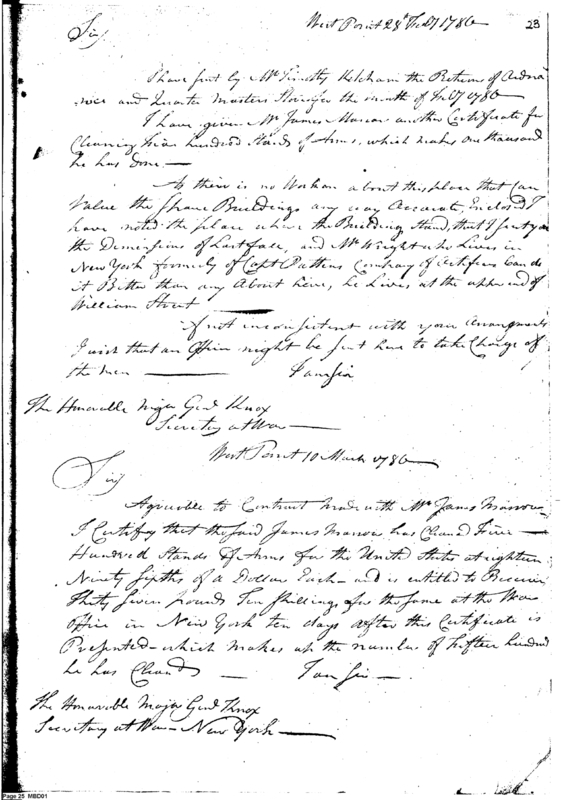 West Point 28th Feby 1786 23
Sir
I have sent by Mr Timothy Ketcham the Return of Ordna
nce and Quarter Masters Stores for the month of Feby 1786
I have given Mr James Marrow another Certificate for
Cleaning five hundred Stands of Arms, which makes one thousand
he has done—
As there is no Workman about this place that Can
Value the Buildings any way Accurate, Enclosed I
have noted the place where the Buildings Stand, that I sent you
the Demensions of Last fall, and Mr Wright who Lives in
New York formerly of Capt Pattens Company of Artificers Can do
it Better than any About here, he Lives at the upper end of
William Street
If not inconsistent with your Arrangments
I wish that an Officer might be sent here to take Charge of
the men — I am Sir
The Honorable Major Genl Knox
Secretary at War—
West Point 10 March 1786
Sir
Agreeable to Contract made with Mr James Marrow
I Certify that the said James Marrow has Cleaned Five
Hundred Stands of Arms for the United States at eighteen
Ninety fifths of a Dollar Each— and is entitled to Receive
Thirty Seven pounds Ten Shillings for the Same at the War
Office in New York ten days after this Certificate is
Presented— which makes up the number of fifteen hundred
he has Cleaned — I am Sir —
The Honorable Major Genl Knox
Secretary at War — New York —
Page 25 MBD01